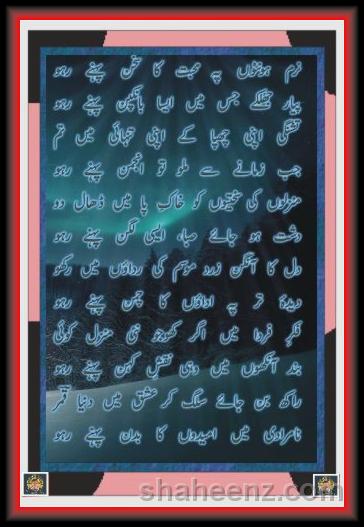 نرم ہونٹوں پہ محبت کا سخن پہنے رہو
پیار چھلکے جس میں ایسا بانکپن پہنے رہو
تشنگی اپنی چھپا کے اپنی تنہائی میں تم
جب زمانے سے ملو تو انجمن پہنے رہو
منزلوں کی سختیوں کو خاکِ پا میں ڈھال دو
دشت ہو جائے صبا، ایسی لگن پہنے رہو
دل کا آنگن زرد موسم کی رداؤں میں رکھو
دیدۂ تر پہ اداؤں کا چمن پہنے رہو
فکرِ فردا میں اگر کھوجو نئی منزل کوئی
بند آنکھوں میں وہی نقشِ کہن پہنے رہو
راکھ بن جائے سلگ کر عشق میں دنیا قمر
نامرادی میں امیدوں کا بدن پہنے رہو
shaheenz.com